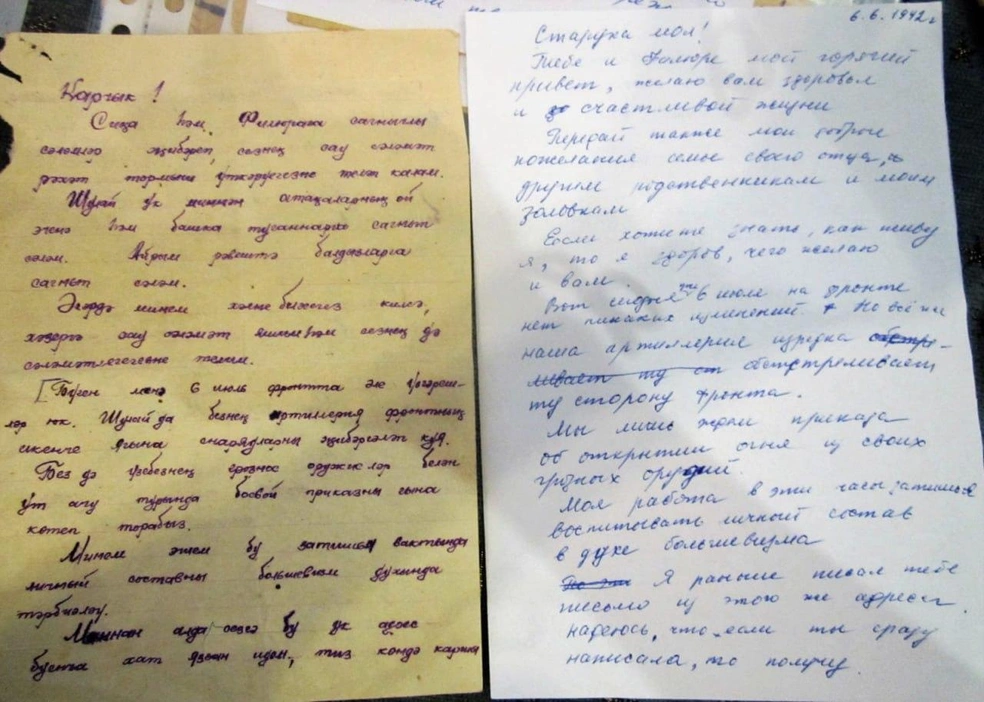 Карчык!
Сиңа һәм Филюрага сагнычлы
сәләмләр җибәреп, сезнең сау сәламәт
рәхәт тормыш үткәрүегезне теләп калам.
Шулай ук миннән әткәләрнең өй
эченә һәм башка туганнарга сагнып
сәлам. Аерым рәвештә балдызларга
сагнып сәлам.
Әгәрдә минем хәлне белсәгез килсә,
хәзергә сау сәламәт яшим һәм сезнең дә
сәламәтлегегезне телим.
Бүген менә 6 июль фронтта әле үзгәреш-
ләр юк. Шулай да безнең артиллерия фронтның
икенче ягына снарядларны җибәргәләп куя.
Без дә үзебезнең грозное орудияләр белән
ут ачу турында боевой приказны гына
көтеп торабыз.
Минем эшем бу затишье вактында
личный составны большевизм духында
тәрбияләү.
Моннан алда сезгә бу ук адрес
буенча хат язган идем, тиз көндә
6.6.1942г
Старуха моя!
Тебе и Филюре мой горячий
привет, желаю вам здоровья
и счастливой жизни
Передай также мои добрые
пожелания семье своего отца,
другим родственникам и моим
золовкам
Если хотите знать, как живу
я, то я здоров, чего желаю
и вам.
Вот сегодня уже 6 июля на фронте
нет никаких изменений. Но всё же
наша артиллерия изредка обстре-
ливает ту ст обстреливает
ту сторону фронта.
Мы лишь ждем приказа
об открытии огня из своих
грозных орудий
Моя работа в эти часы затишья
воспитывать личный состав
в духе большевизма
Я раньше писал тебе
письмо из этого же адреса.
надеюсь, что если ты сразу
написала, то получу.